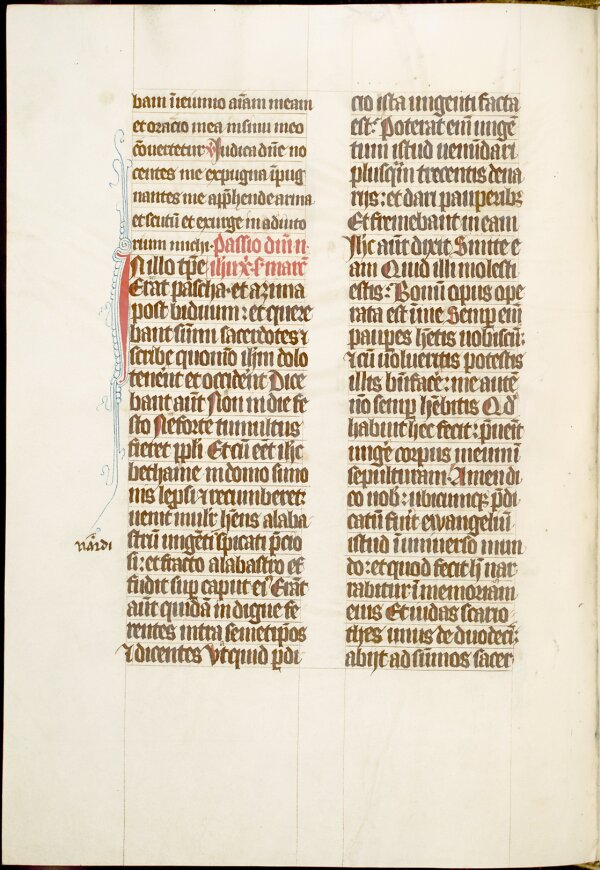 bam i ieiunio aīam meam
et oracio mea insinu meo
cōuertetur Iudica dn̄e no
centes me expugna īpug
nantes me app̄hende arma
et scutū et exurge in adiuto
rium michi Passio dn̄i n̄
ihū xp̄i s marc̄
In illo tp̄e
Erat pascha et azima
post biduum : et quere
bant sūmi sacerdotes ⁊
scribe quomō ih̄m dolo
tenerent et occiderēt Dice
bant aūt Non in die fe
sto Neforte tumultus
fieret pp̄li Et cū eēt ih̄c
bethanie in domo simo
nis lepsi ⁊ recumberet:
uenit mulr̄ hn̄s alaba
strū ungēti spicati p̄cio
nardi
si : et fracto alabastro ef
fudit sup̄ caput eiꝰ Erāt
aūt quidā indigne fe
rentes intra semetip̄os
⁊ dicentes Vtquid p̄di
cio ista ungenti facta
est: Poterat eīm ungē
tum istud uenūdari
plusqm̄ trecentis dena
rijs: et dari pauperibꝫ
Et fremebant in eam
Ih̄c aūt dixit Sinite e
am Quid illi molesti
estis: Bonū opus ope
rata est ī me Semp̄ eīm
paupes hētis nobiscū:
⁊ cū uolueritis potestis
illis bn̄facē: me autē
nō semp̄ hēbitis Qd̄
habuit hec fecit: p̄uēit
ungē corpus meum
sepulturam Amen di
co nob̄: ubicumqꝫ p̄di
catū fūit ewangeliū
istud ī uniuerso mun
do: et quod fecit h̄ nar
rabitur ī memoriam
eius Et iudas scario
thes unus de duodeci:
abijt ad sūmos sacer